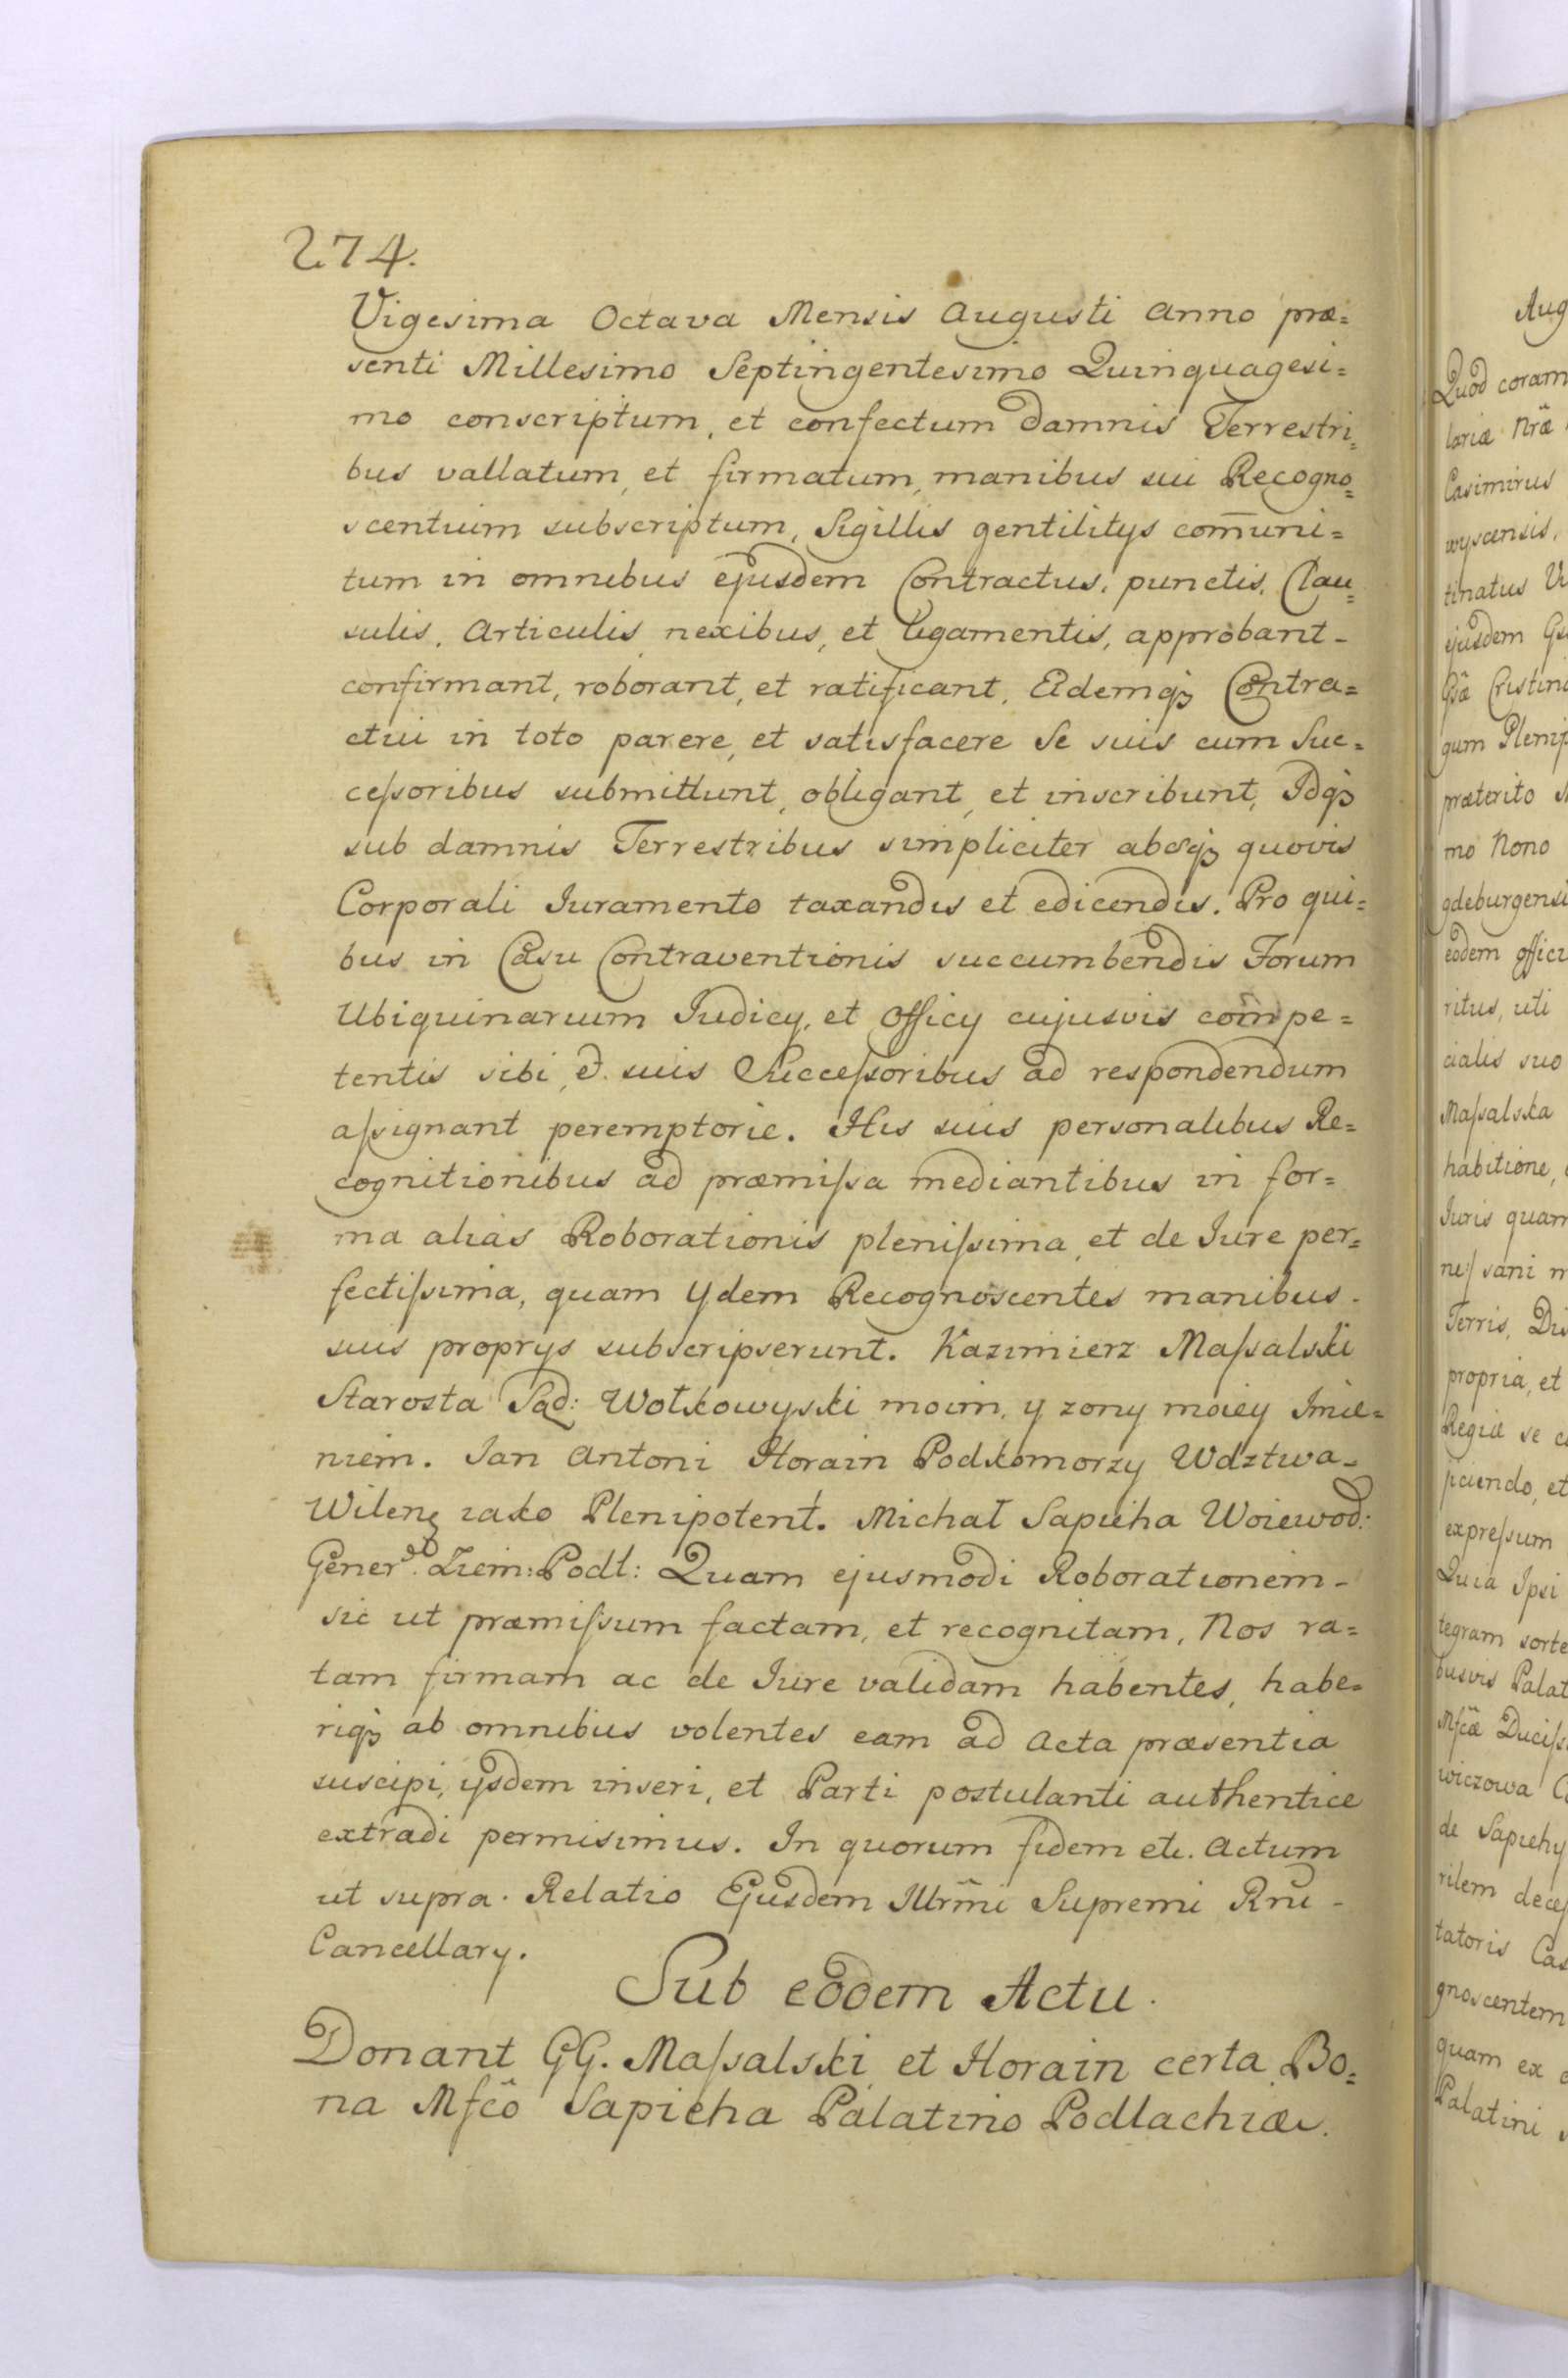 274.
Vigesima Octava Mensis Augusti Anno præ=
senti Millesimo Septingentesimo Quinquagesi=
mo conscriptum, et confectum damnis Terrestri=
bus vallatum, et firmatum, manibus sui Recogno=
scentium subscriptum, Sigillis gentilitys com̄uni=
tum in omnibus ejusdem Contractus, punctis, Clau=
sulis, Articulis, nexibus, et ligamentis, approbant-
confirmant, roborant, et ratificant, Eidemqȝ Contra=
ctui in toto parere, et satisfacere Se suis cum Suc=
ceſsoribus submittunt, obligant, et inscribunt, Idqȝ
sub damnis Terrestribus simpliciter absqȝ quovis
Corporali Iuramento taxandis et edicendis. Pro qui=
bus in Casu Contraventionis succumbendis Forum
Ubiquinarium Iudicy, et Officy cujusvis compe=
tentis sibi, et suis Succeſsoribus ad respondendum
aſsignant peremptorie. His suis personalibus Re=
cognitionibus ad præmiſsa mediantibus in for=
ma alias Roborationis pleniſsima, et de Iure per=
fectiſsima, quam Ydem Recognoscentes manibus.
suis proprys subscripserunt. Kazimierz Maſsalski
Starosta Sąd: Wołkowyski moim, y zony moiey Imie=
niem. Ian Antoni Horain Podkomorzy Wdztwa-
Wilenȝ iako Plenipotent. Michał Sapieha Woiewod:
Gener: Ziem: Podl: Quam ejusmodi Roborationem-
sic ut præmiſsum factam, et recognitam, Nos ra=
tam firmam ac de Iure validam habentes, habe=
riqȝ ab omnibus volentes eam ad Acta præsentia
suscipi, ysdem inseri, et Parti postulanti authentice
extradi permisimus. In quorum fidem etc. Actum
ut supra. Relatio Ejusdem Illrm̃i Supremi Rni-
Cancellary.
Sub eodem Actu.
Donant GG. Maſsalski et Horain certa Bo=
na Mfcõ Sapieha Palatino Podlachiæ.
Aug
Quod coram
lariæ Nrã
Casimirus
wyscensis,
tinatus
ejusdem
Gsã Cristin
gum Plenip
præterito
mo Nono
gdeburgensi
eodem offici
ritus, uti
cialis suo
Maſsalska
habitione,
Iuris quam
neſ sani m
Terris, Dis
propria, et
Regiæ se
piciendo, et
expreſsum
Quia Ipsi
tegram sorte
busvis Palat
Mfcã Duciſs
wiczowa
de Sapiehy
rilem deceſ
tatoris Cas
gnoscentem
quam ex
Palatini